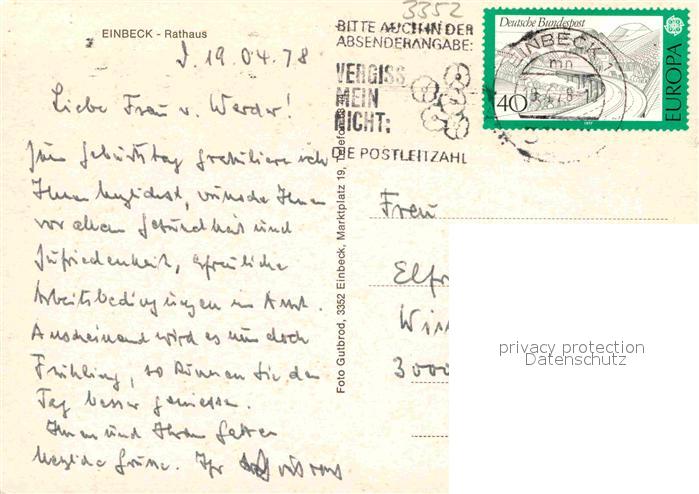 EINBECK - Rathaus
19.04.78
Liebe Frau v. Werder!
Zum Geburtstag gratuliere ich
Ihnen herzlichst, wünsche Ihnen
vor allem Gesundheit und
Zufriedenheit, erfreuliche
Arbeitsbedingungen im Amt.
Anscheinend wird es nun doch
Frühling, so können Sie den
Tag besser geniessen.
Ihnen und Ihrem Gatten
herzliche Grüsse. Ihr
Foto Gutbrod, 3352 Einbeck, Marktplatz 19, Telefon
3352
BITTE AUCH IN DER
ABSENDERANGABE:
VERGISS
MEIN
NICHT:
DIE POSTLEITZAHL
Deutsche Bundespost
EUROPA
40
1977
EINBECK 1
mn
Frau
Elfr
Win
3000
privacy protection
Datenschutz